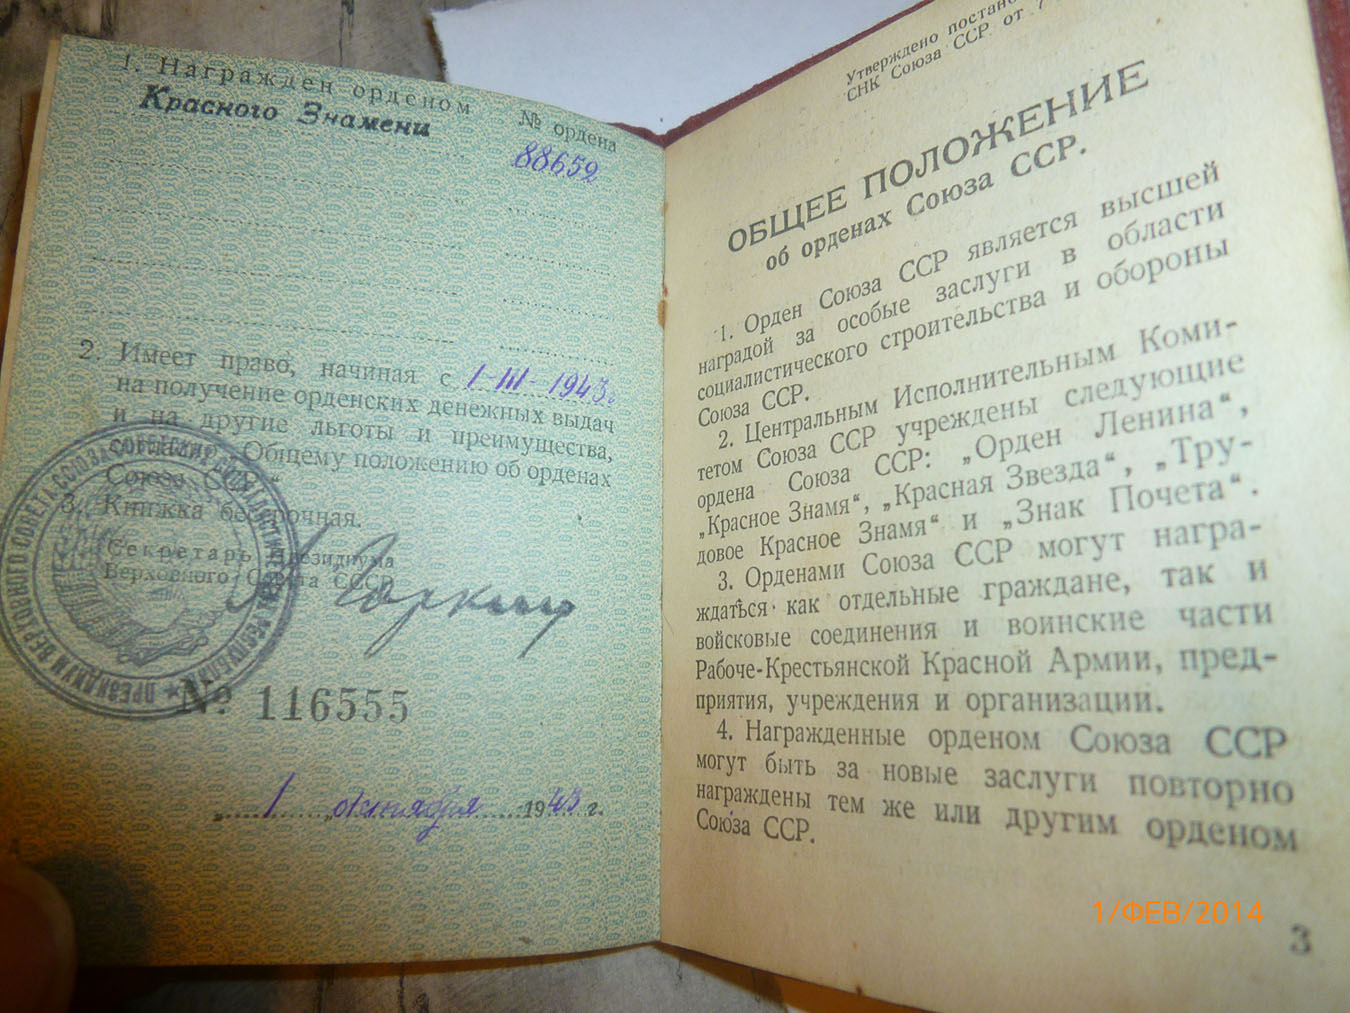 1. Награжден орденом
Красного Знамени
№ ордена
88652
2. Имеет право, начиная с 1-III-1943.
на получение орденских денежных выдач
и на другие льготы и преимущества,
Общему положению об орденах
Союза ССР"
3. Книжка бессрочная.
Секретарь Президиума
Верховного Совета СССР
А Горкин
ПРЕЗИДИУМ ВЕРХОВНОГО СОВЕТА СОЮЗА СОВЕТСКИХ СОЦИАЛИСТИЧЕСКИХ РЕСПУБЛИК
№ 116555
„ 1 " октября 1943 г.
Утверждено
СНК Союза ССР от 7
ОБЩЕЕ ПОЛОЖЕНИЕ
об орденах Союза ССР.
1. Орден Союза ССР является высшей
наградой за особые заслуги в области
социалистического строительства и обороны
Союза ССР.
2. Центральным Исполнительным Коми-
тетом Союза ССР учреждены следующие
ордена Союза ССР: „Орден Ленина“,
„Красное Знамя“, „Красная Звезда“, „Тру-
довое Красное Знамя“ и „Знак Почета“.
3. Орденами Союза ССР могут награ-
ждаться как отдельные граждане, так и
войсковые соединения и воинские части
Рабоче-Крестьянской Красной Армии, пред-
приятия, учреждения и организации.
4. Награжденные орденом Союза ССР
могут быть за новые заслуги повторно
награждены тем же или другим орденом
Союза ССР.
3
1/ФЕВ/2014